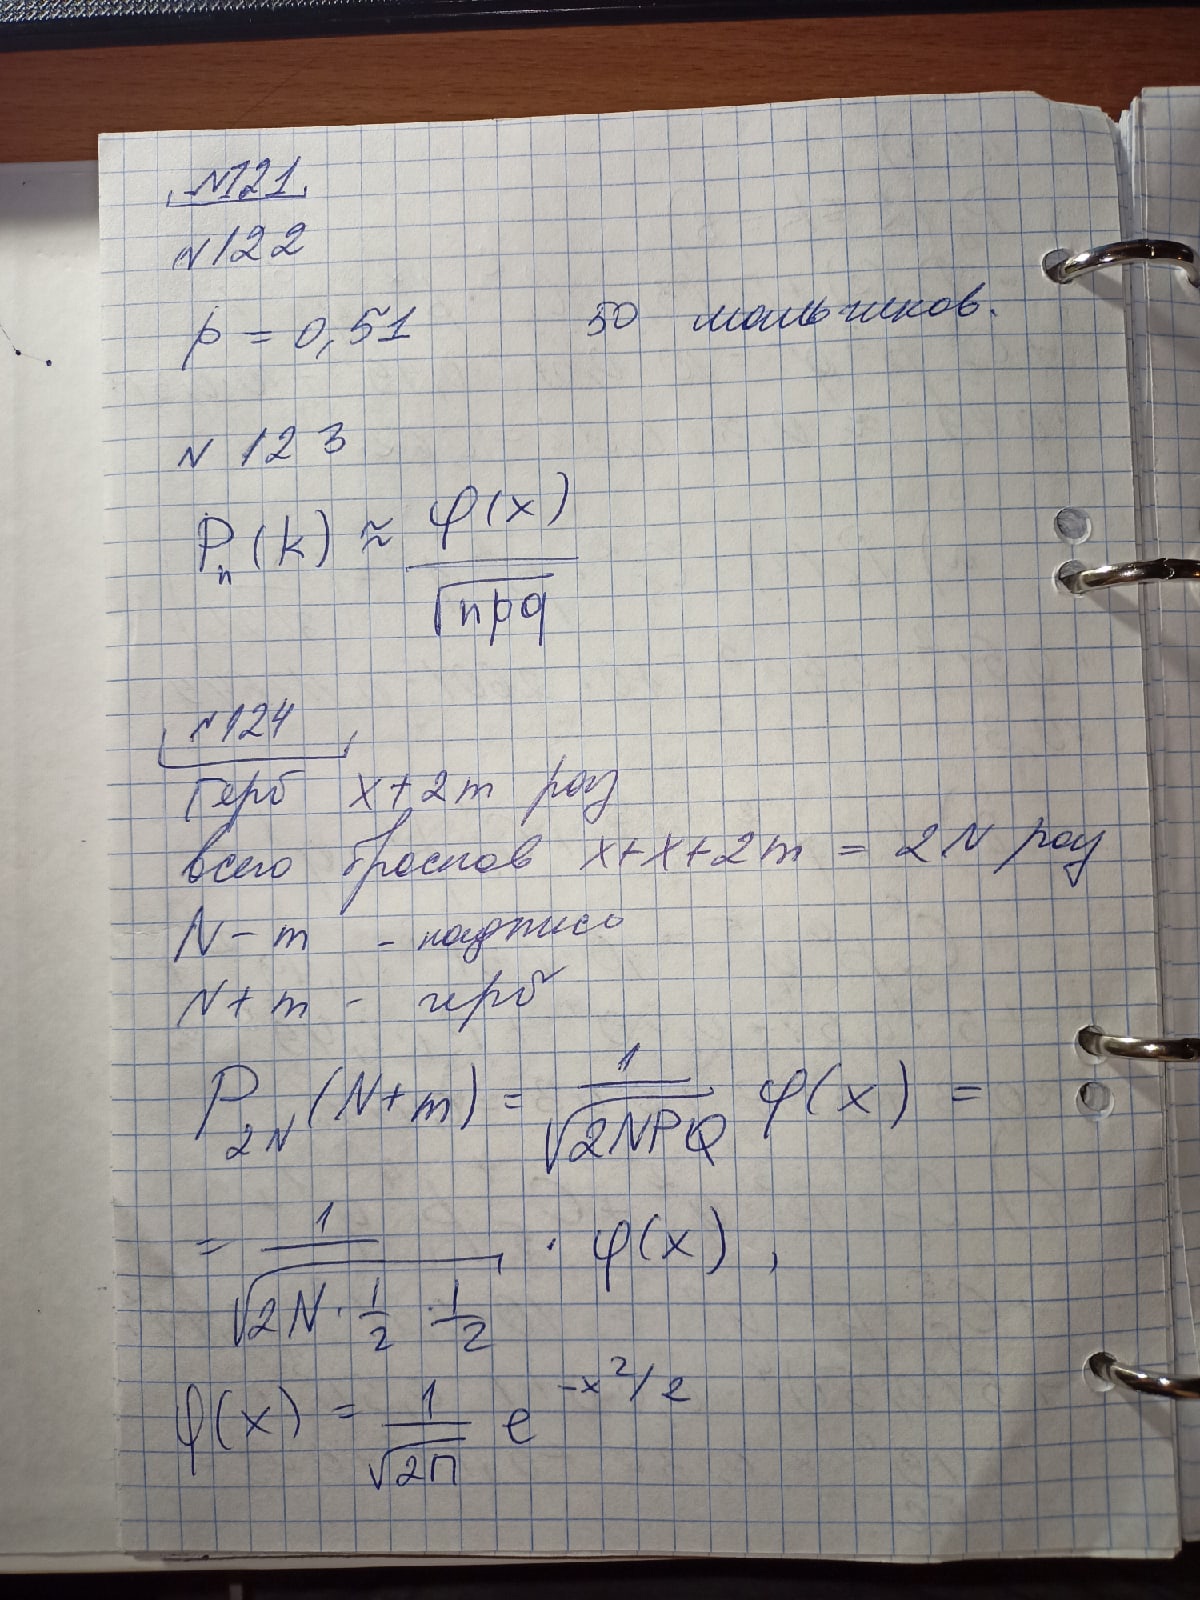 N121
N122
p = 0,51 50 мальчиков.
N 123
Pₙ(k) ≈ φ(x) / √npq
N124
Герб x+2m раз
всего бросков x+x+2m = 2N раз
N-m - надпись
N+m - герб
P₂N(N+m) = 1/√2NPQ φ(x) =
= 1/√2N·1/2·1/2 · φ(x),
φ(x) = 1/√2П e^-x²/2